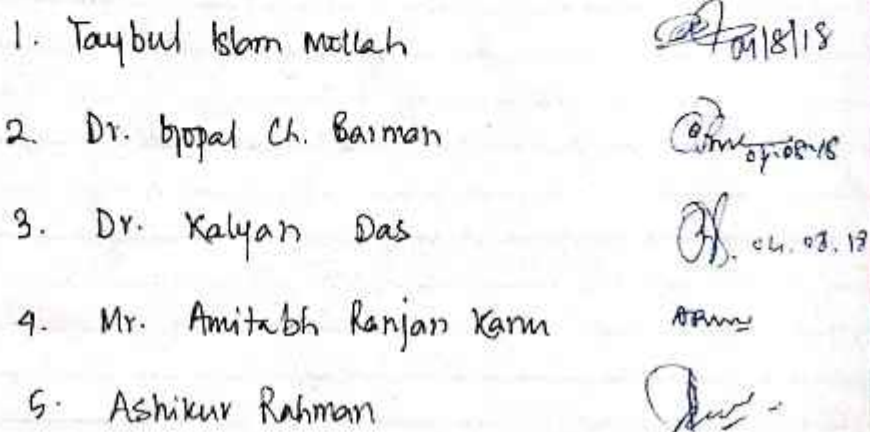 1. Taybul Islam Mollah 04/8/18
2. Dr. Gopal Ch. Barman 04.08.18
3. Dr. Kalyan Das 04.08.18
4. Mr. Amitabh Ranjan
5. Ashikur Rahman